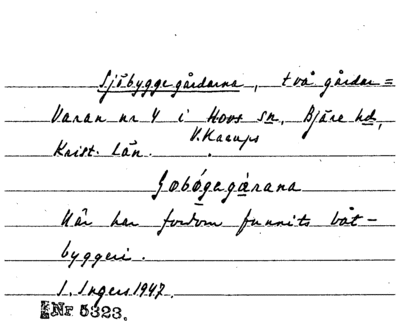 Sjöbyggegårdarna, två gårdar =
Varan nr 4 i Hovs sn, Bjäre hd,
V. Karups
Krist. län.
Gobógegårana
Här har fordom funnits båt-
byggeri.
I. Ingers 1947.
Nr 5323.